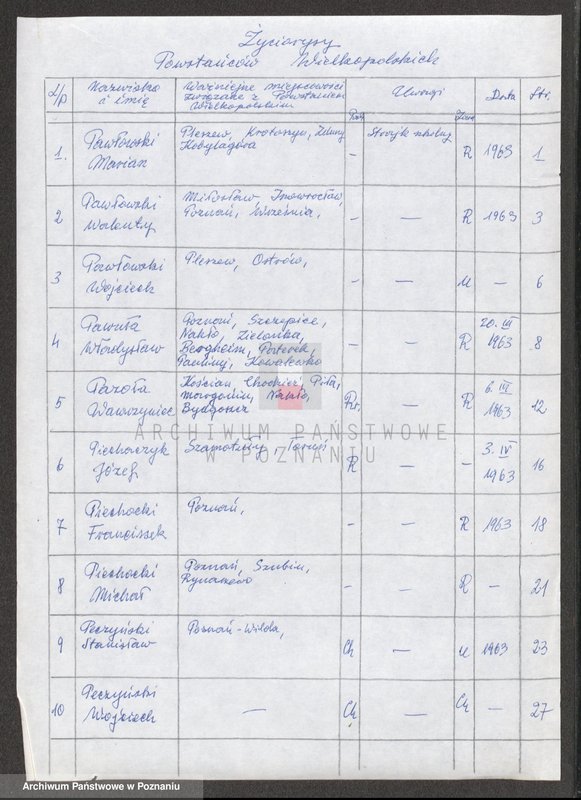 Życiorysy
Powstańców Wielkopolskich
L/p Nazwisko i imię Ważniejsze miejscowości związane z Powstaniem Wielkopolskim Uwagi Data Str.
1. Pawłowski Marian Pleszew, Krotoszyn, Kobylagóra R 1963 1
2 Pawłowski Walenty Miłosław, Inowrocław, Poznań, Września, - — R 1963 3
3 Pawłowski Wojciech Pleszew, Ostrów, - — M — 6
4 Pawuła Władysław Poznań, Szczepice, Nakło, Zielonka, Bergheim, Kowalewko - — R 20. III 1963 8
5 Pazoła Wawrzyniec Kościan, Chodzież, Piła, Nakło, Bydgoszcz — R 6. III 1963 12
6 Piechaczyk Józef Szamotuły, Toruń R — - 3. IV 1963 16
7 Piechocki Franciszek Poznań, - — R 1963 18
8 Piechocki Michał Poznań, Szubin, Rynarzewo - — R — 21
9 Peczyński Stanisław Poznań-Wilda, Ch — M 1963 23
10 Peczyński Wojciech — Ch — Ch — 27
ARCHIWUM PAŃSTWOWE
W POZNANIU
Archiwum Państwowe w Poznaniu